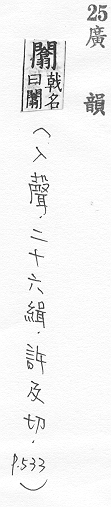 25
廣韻
闟
戟名
曰闟
(入聲.二十六緝.許及切.p.533)